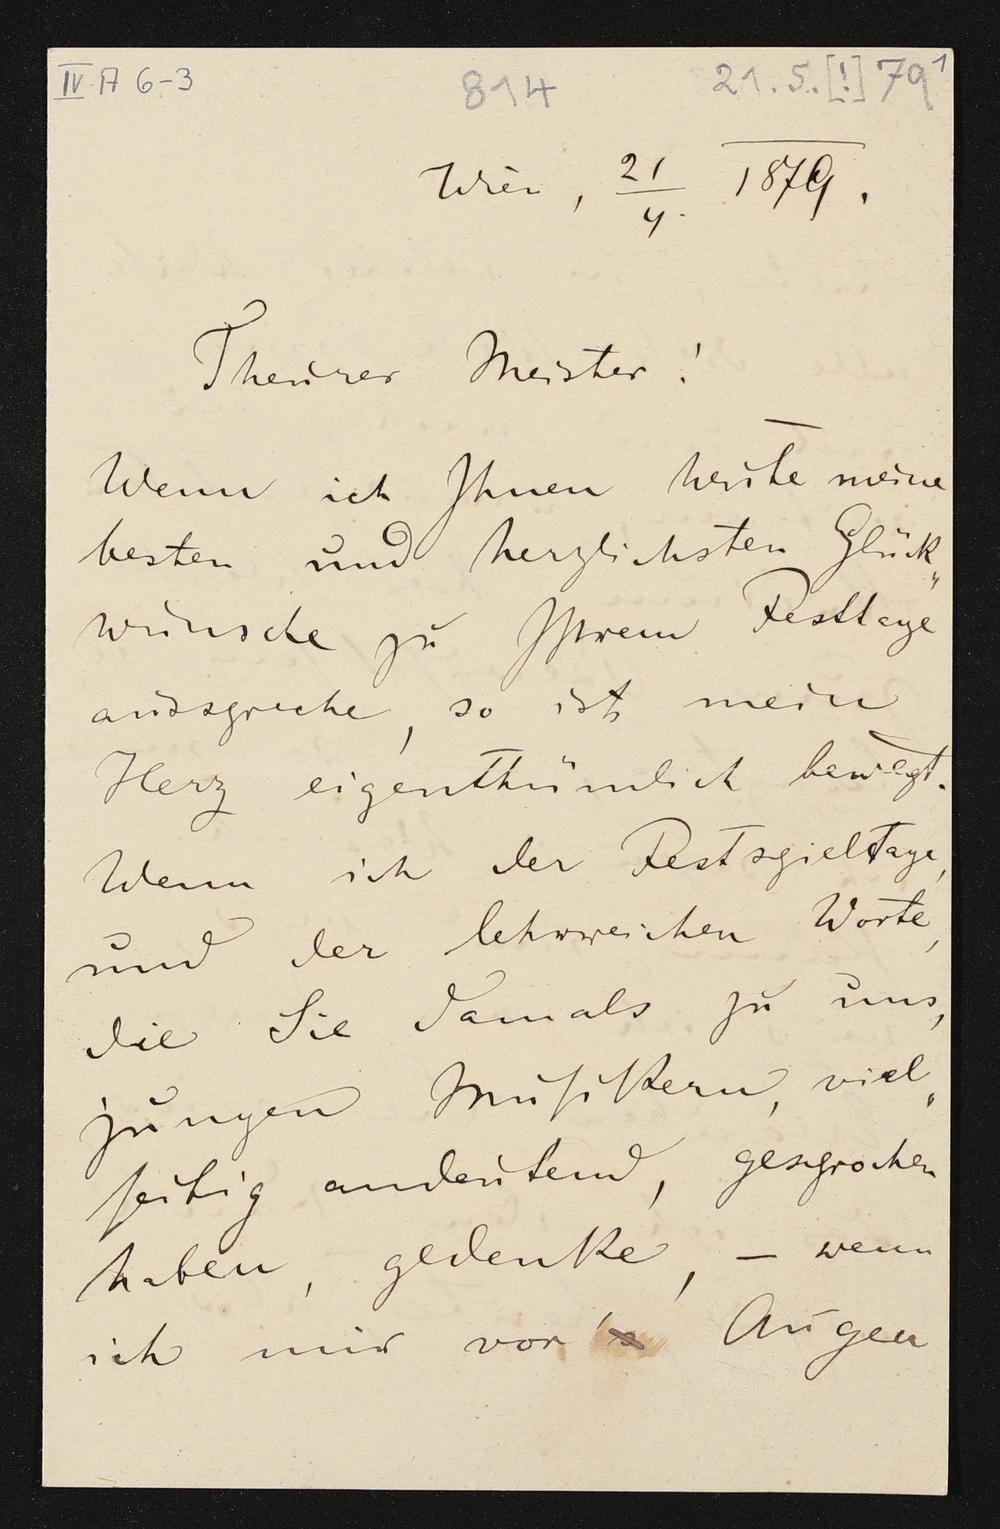 IV A 6-3 814 21.5.[!] 79 1
Wien, 21/4. 1879.
Theurer Meister!
Wenn ich Ihnen heute meine
besten und herzlichsten Glück„
wünsche zu Ihrem Festtage
ausspreche, so ist mein
Herz eigenthümlich bewegt.
Wenn ich der Festspieltage,
und der lehrreichen Worte,
die Sie damals zu uns,
jungen Musikern, viel„
seitig andeutend, gesprochen
haben, gedenke, – wenn
ich mir vor's Augen